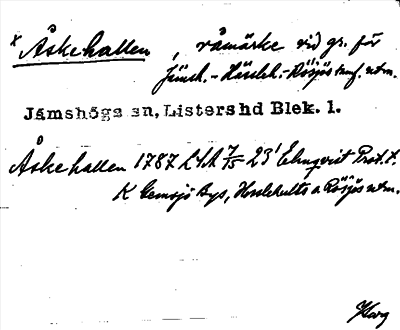 x Åskehallen, råmärke vid gr. för
Jämsh.-Hässleh.-Rösjös
Jämshögs sn, Listers hd Blek. l.
Åskehallen 1787 LSA 7/5 23' Ehnqvist Prot. t.
K Gemsjö Bys, Hesslehults o Rösjös utm.